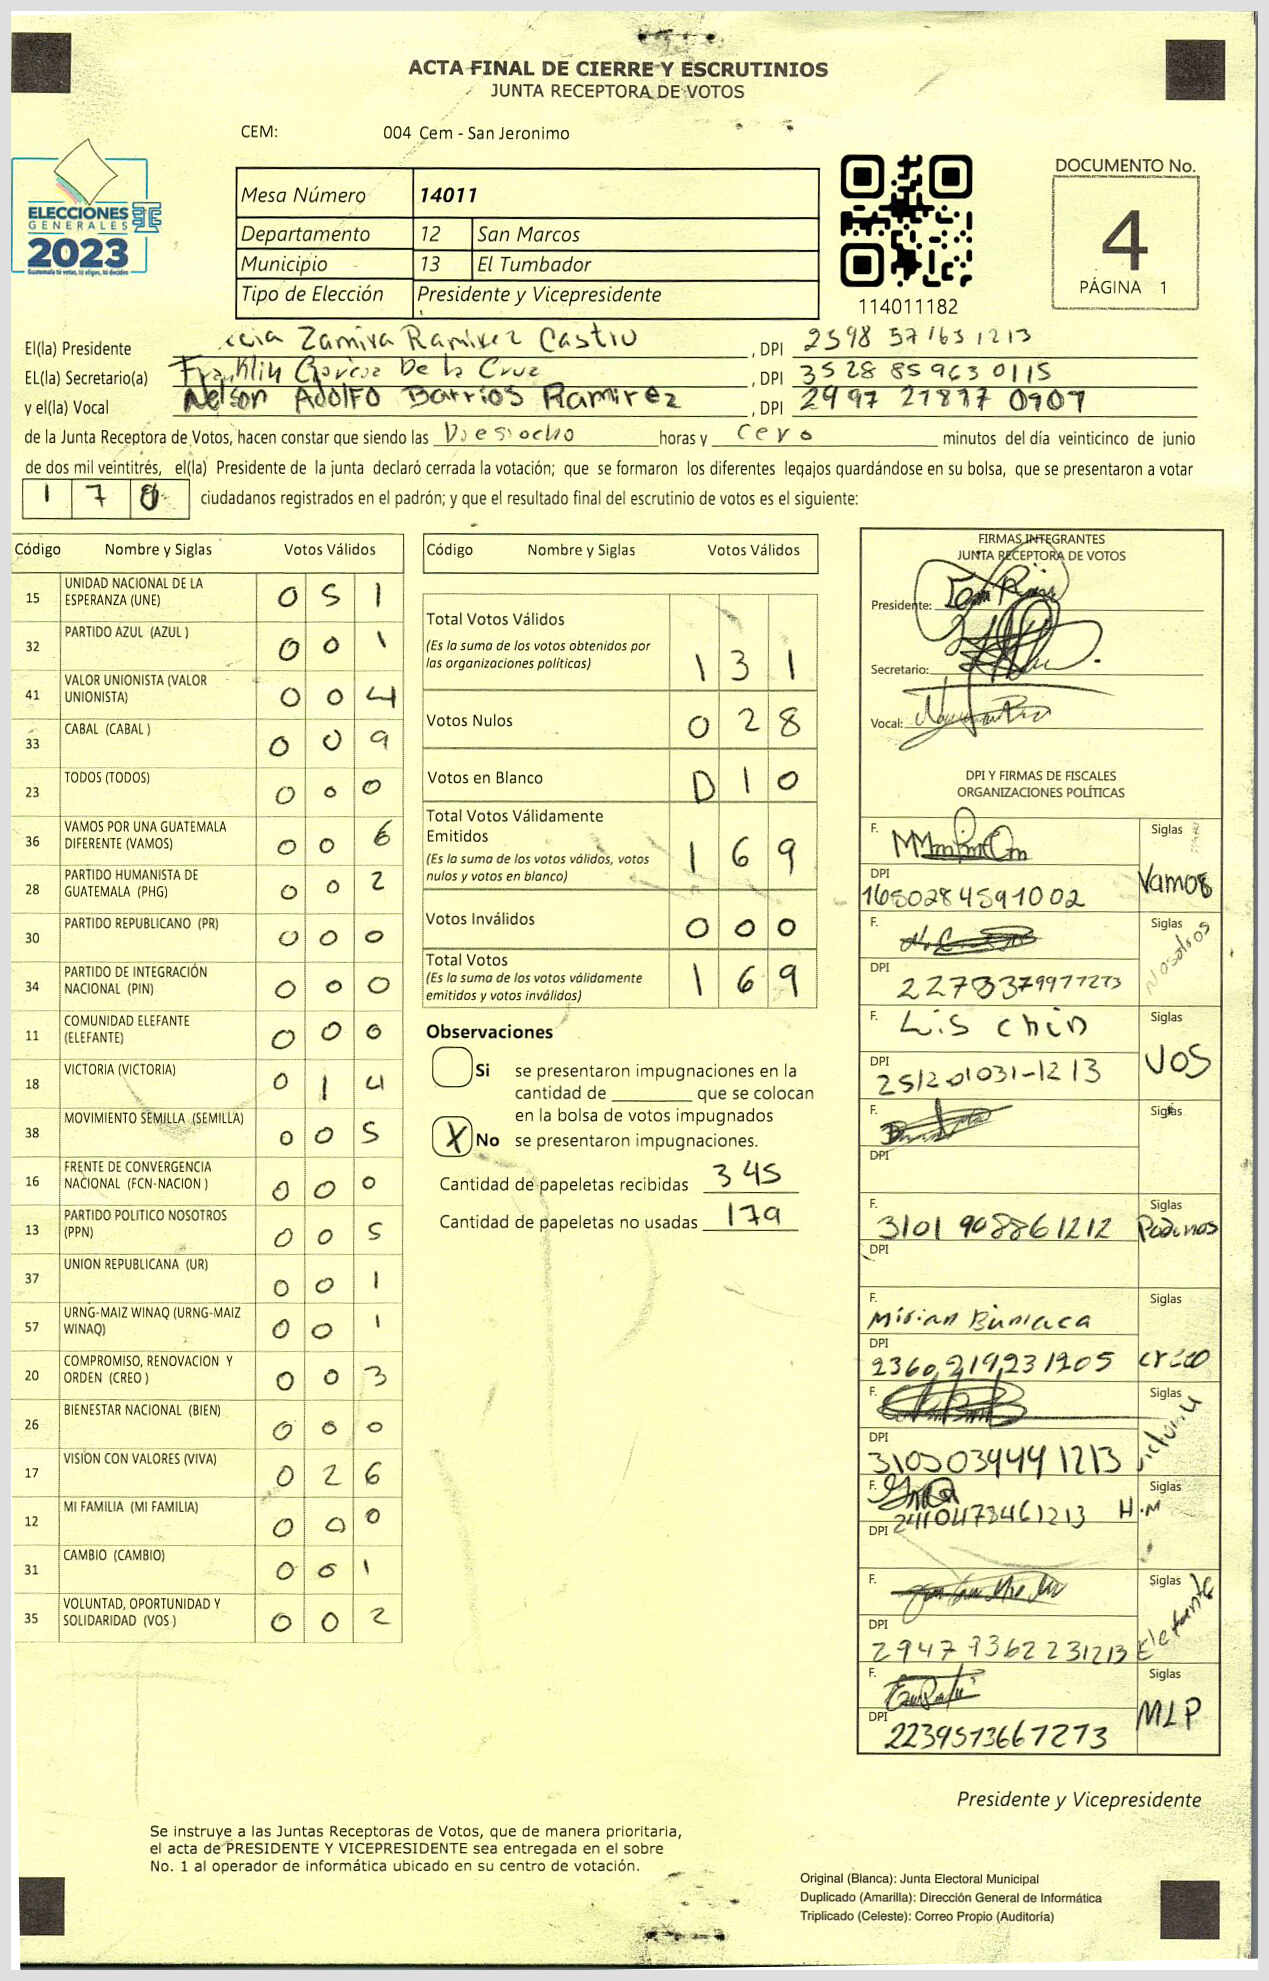 ACTA FINAL DE CIERRE Y ESCRUTINIOS
JUNTA RECEPTORA DE VOTOS
CEM: 004 Cem - San Jeronimo
ELECCIONES
GENERALES
2023
Guatemala tú votas, tú eliges, tú decides
Mesa Número 14011
Departamento 12 San Marcos
Municipio 13 El Tumbador
Tipo de Elección Presidente y Vicepresidente
114011182
DOCUMENTO No.
4
PÁGINA 1
El(la) Presidente Zamira Ramirez Castro , DPI 2598 57163 1213
EL(la) Secretario(a) Franklin Garcia De la Cruz , DPI 3528 85963 0115
y el(la) Vocal Nelson Adolfo Barrios Ramirez , DPI 2997 27877 0907
de la Junta Receptora de Votos, hacen constar que siendo las Diesiocho horas y Cero minutos del día veinticinco de junio
de dos mil veintitrés, el(la) Presidente de la junta declaró cerrada la votación; que se formaron los diferentes legajos quardándose en su bolsa, que se presentaron a votar
1 7 ciudadanos registrados en el padrón; y que el resultado final del escrutinio de votos es el siguiente:
Código Nombre y Siglas Votos Válidos
15 UNIDAD NACIONAL DE LA ESPERANZA (UNE) 0 5 1
32 PARTIDO AZUL (AZUL ) 0 0 1
41 VALOR UNIONISTA (VALOR UNIONISTA) 0 0 4
33 CABAL (CABAL ) 0 0 9
23 TODOS (TODOS) 0 0 0
36 VAMOS POR UNA GUATEMALA DIFERENTE (VAMOS) 0 0 6
28 PARTIDO HUMANISTA DE GUATEMALA (PHG) 0 0 2
30 PARTIDO REPUBLICANO (PR) 0 0 0
34 PARTIDO DE INTEGRACIÓN NACIONAL (PIN) 0 0 0
11 COMUNIDAD ELEFANTE (ELEFANTE) 0 0 0
18 VICTORIA (VICTORIA) 0 1 4
38 MOVIMIENTO SEMILLA (SEMILLA) 0 0 5
16 FRENTE DE CONVERGENCIA NACIONAL (FCN-NACION ) 0 0 0
13 PARTIDO POLITICO NOSOTROS (PPN) 0 0 5
37 UNION REPUBLICANA (UR) 0 0 1
57 URNG-MAIZ WINAQ (URNG-MAIZ WINAQ) 0 0 1
20 COMPROMISO, RENOVACION Y ORDEN (CREO ) 0 0 3
26 BIENESTAR NACIONAL (BIEN) 0 0 0
17 VISION CON VALORES (VIVA) 0 2 6
12 MI FAMILIA (MI FAMILIA) 0 0 0
31 CAMBIO (CAMBIO) 0 0 1
35 VOLUNTAD, OPORTUNIDAD Y SOLIDARIDAD (VOS ) 0 0 2
Código Nombre y Siglas Votos Válidos
Total Votos Válidos
(Es la suma de los votos obtenidos por
las organizaciones políticas) 1 3 1
Votos Nulos 0 2 8
Votos en Blanco 0 1 0
Total Votos Válidamente
Emitidos
(Es la suma de los votos válidos, votos
nulos y votos en blanco) 1 6 9
Votos Inválidos 0 0 0
Total Votos
(Es la suma de los votos válidamente
emitidos y votos inválidos) 1 6 9
Observaciones
Si se presentaron impugnaciones en la
cantidad de ________ que se colocan
en la bolsa de votos impugnados
X No se presentaron impugnaciones.
Cantidad de papeletas recibidas 345
Cantidad de papeletas no usadas 179
FIRMAS INTEGRANTES
JUNTA RECEPTORA DE VOTOS
Presidente:
Secretario:
Vocal:
DPI Y FIRMAS DE FISCALES
ORGANIZACIONES POLÍTICAS
F. Siglas
DPI 1650284591002 Vamos
F. Siglas Nosotros
DPI
F. Luis Chin Siglas
DPI 251201031-1213 VOS
F. Siglas
DPI
F. 3101 908861212 Siglas Podemos
DPI
F. Mirian Siglas
DPI 2360,219,231205 creo
F. Siglas Victoria
DPI 3105034441213
F. Siglas
DPI 24110473461213 H.M
F. Siglas Elefante
DPI 2947 9362231213
F. Siglas
DPI 2239573667273 MLP
Presidente y Vicepresidente
Se instruye a las Juntas Receptoras de Votos, que de manera prioritaria,
el acta de PRESIDENTE Y VICEPRESIDENTE sea entregada en el sobre
No. 1 al operador de informática ubicado en su centro de votación.
Original (Blanca): Junta Electoral Municipal
Duplicado (Amarilla): Dirección General de Informática
Triplicado (Celeste): Correo Propio (Auditoría)